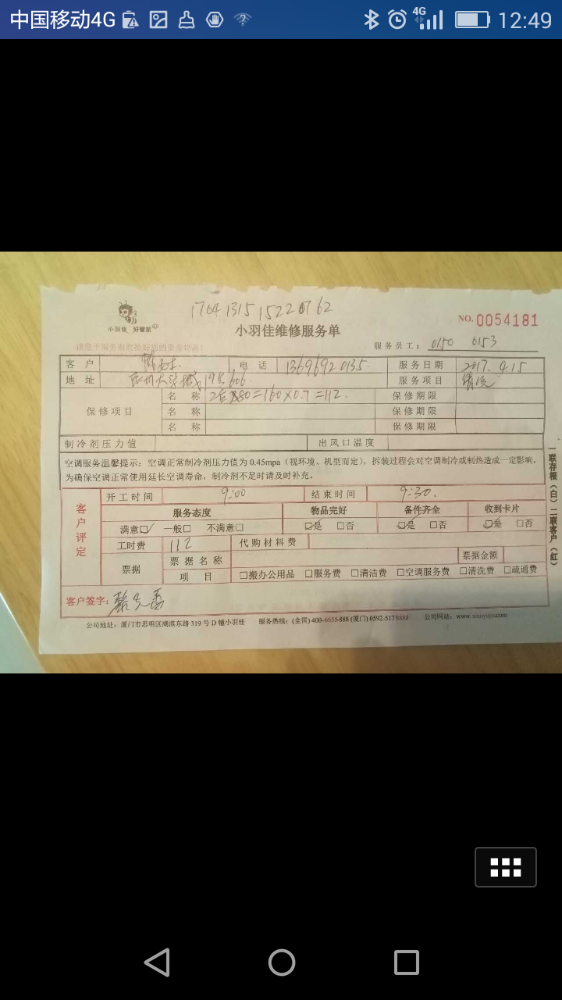 中国移动4G 4G 12:49
1704131515220762
小羽佳 好管家
小羽佳维修服务单
NO. 0054181
服务员工: 0150 0153
客户 电话 13696920135 服务日期 2017.4.15
地址 19号606 服务项目 清洗
保修项目 名称 2台×80=160×0.7=112. 保修期限
名称 保修期限
名称 保修期限
制冷剂压力值 出风口温度
空调服务温馨提示: 空调正常制冷剂压力值为0.45mpa(视环境、机型而定), 拆装过程会对空调制冷或制热造成一定影响,
为确保空调正常使用延长空调寿命, 制冷剂不足时请及时补充。
客户评定
开工时间 9:00 结束时间 9:30.
服务态度 物品完好 备件齐全 收到卡片
满意☑ 一般□ 不满意□ ☑是 □否 ☑是 □否 ☑是 □否
工时费 112 代购材料费
票据 票据名称 票据金额
项目 □搬办公用品 □服务费 □清洁费 □空调服务费 □清洗费 □疏通费
客户签字:
公司地址: 厦门市思明区湖滨东路319号D幢小羽佳 服务热线: (全国) 400-6633-888 (厦门) 0592- 公司网站:
一联存根(白) 二联客户(红)